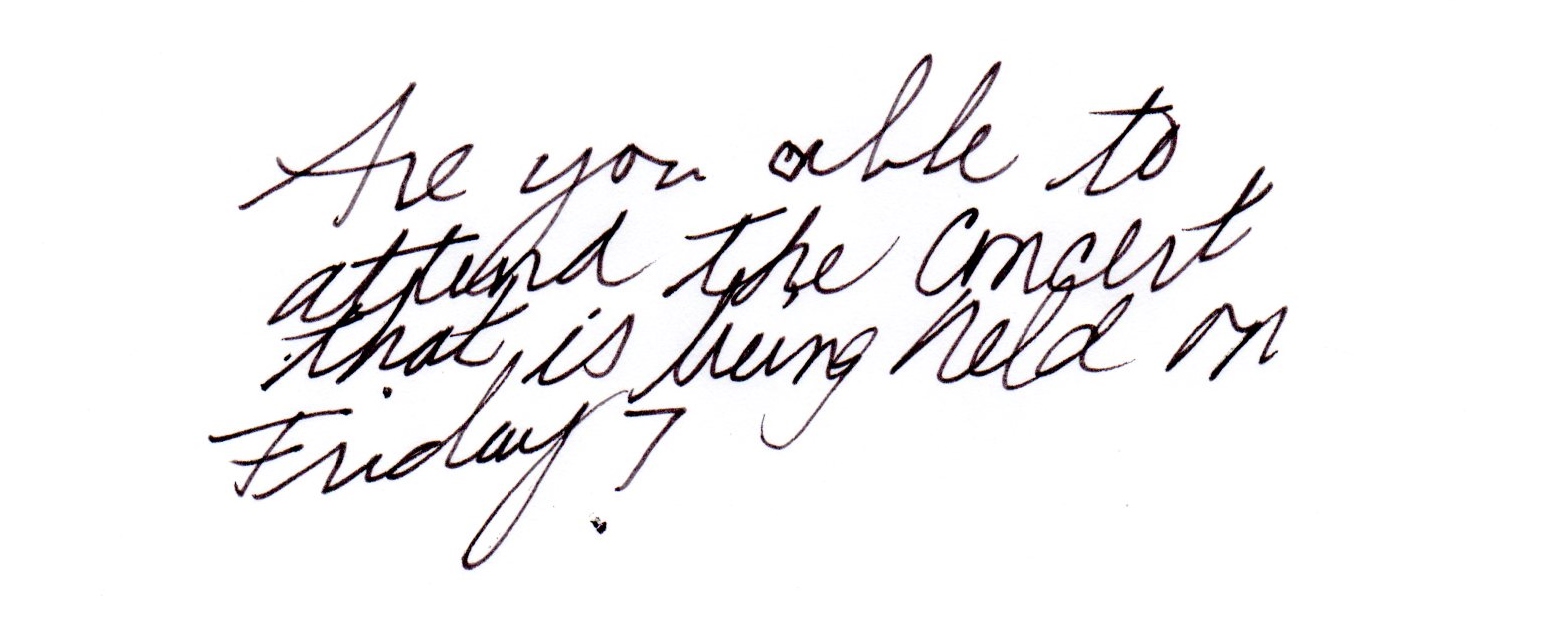 Are you able to
attend the concert
that is being held on
Friday?